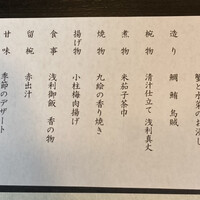 蟹と水菜のお浸し
造り 鯛 鮪 烏賊
椀物 清汁仕立て 浅利真丈
煮物 米茄子茶巾
焼物 九絵の香り焼き
揚げ物 小柱梅肉揚げ
食事 浅利御飯 香の物
留椀 赤出汁
甘味 季節のデザート